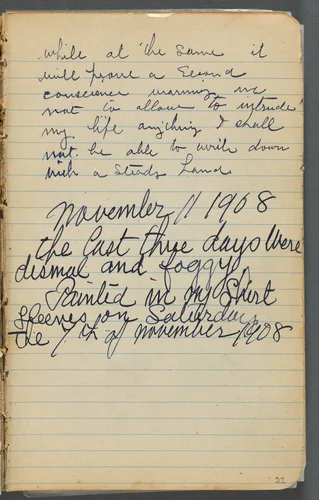 while at the same it
will prove a Second
conscience warning me
not to allow to intrude
my life anything I shall
not be able to write down
with a Steady hand
November 11 1908
the Last three days Were
dismal and foggy
Painted in my Shirt
Sleeves on Saturday
the 7th of November 1908
22